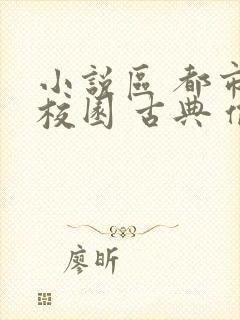 小說區 都市
校園 古典
廖昕